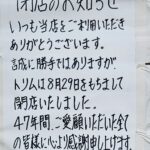 閉店のお知らせ
いつも当店をご利用いただき
ありがとうございます。
誠に勝手ではありますが、
トリムは8月29日をもちまして
閉店いたしました。
47年間、ご愛願いただいた全て
の皆様に心より感謝申し上げます。